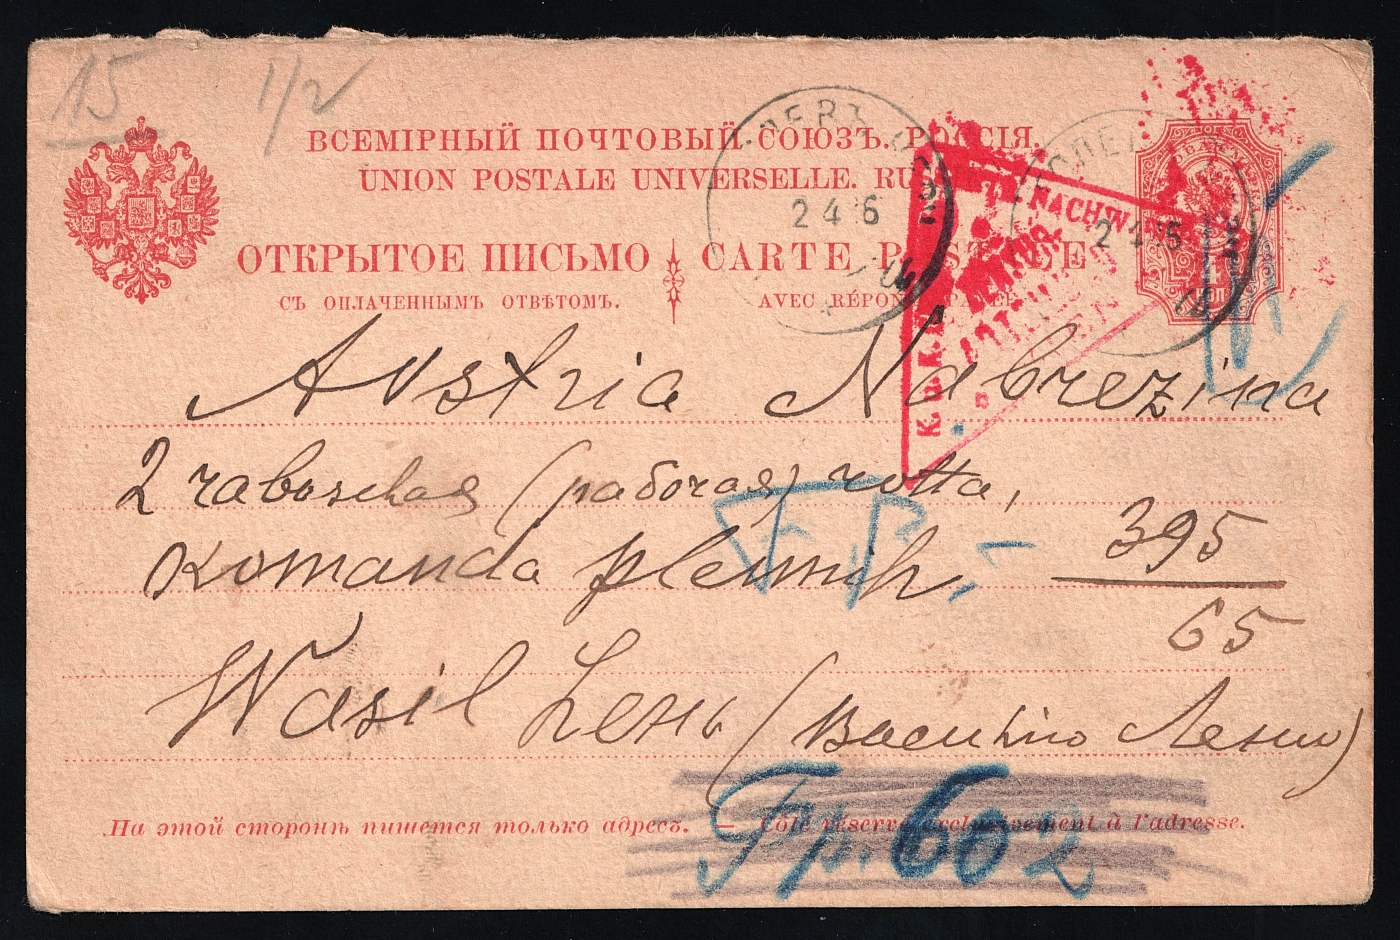 15 1/2
ВСЕМІРНЫЙ ПОЧТОВЫЙ СОЮЗЪ. РОССІЯ.
UNION POSTALE UNIVERSELLE. RUS
ОТКРЫТОЕ ПИСЬМО CARTE POSTALE
СЪ ОПЛАЧЕННЫМЪ ОТВѢТОМЪ. AVEC RÉPONSE PAYÉE
2 4 6
2 4 6
NACHW
K.u.K.
Avstria Nabrezina
2 raboschaя (рабочая) rotta,
Komanda plennih, 395
65
Wasil Lень (Василію Леню)
Fp. 602
На этой сторонѣ пишется только адресъ. — Côté réservé exclusivement à l'adresse.